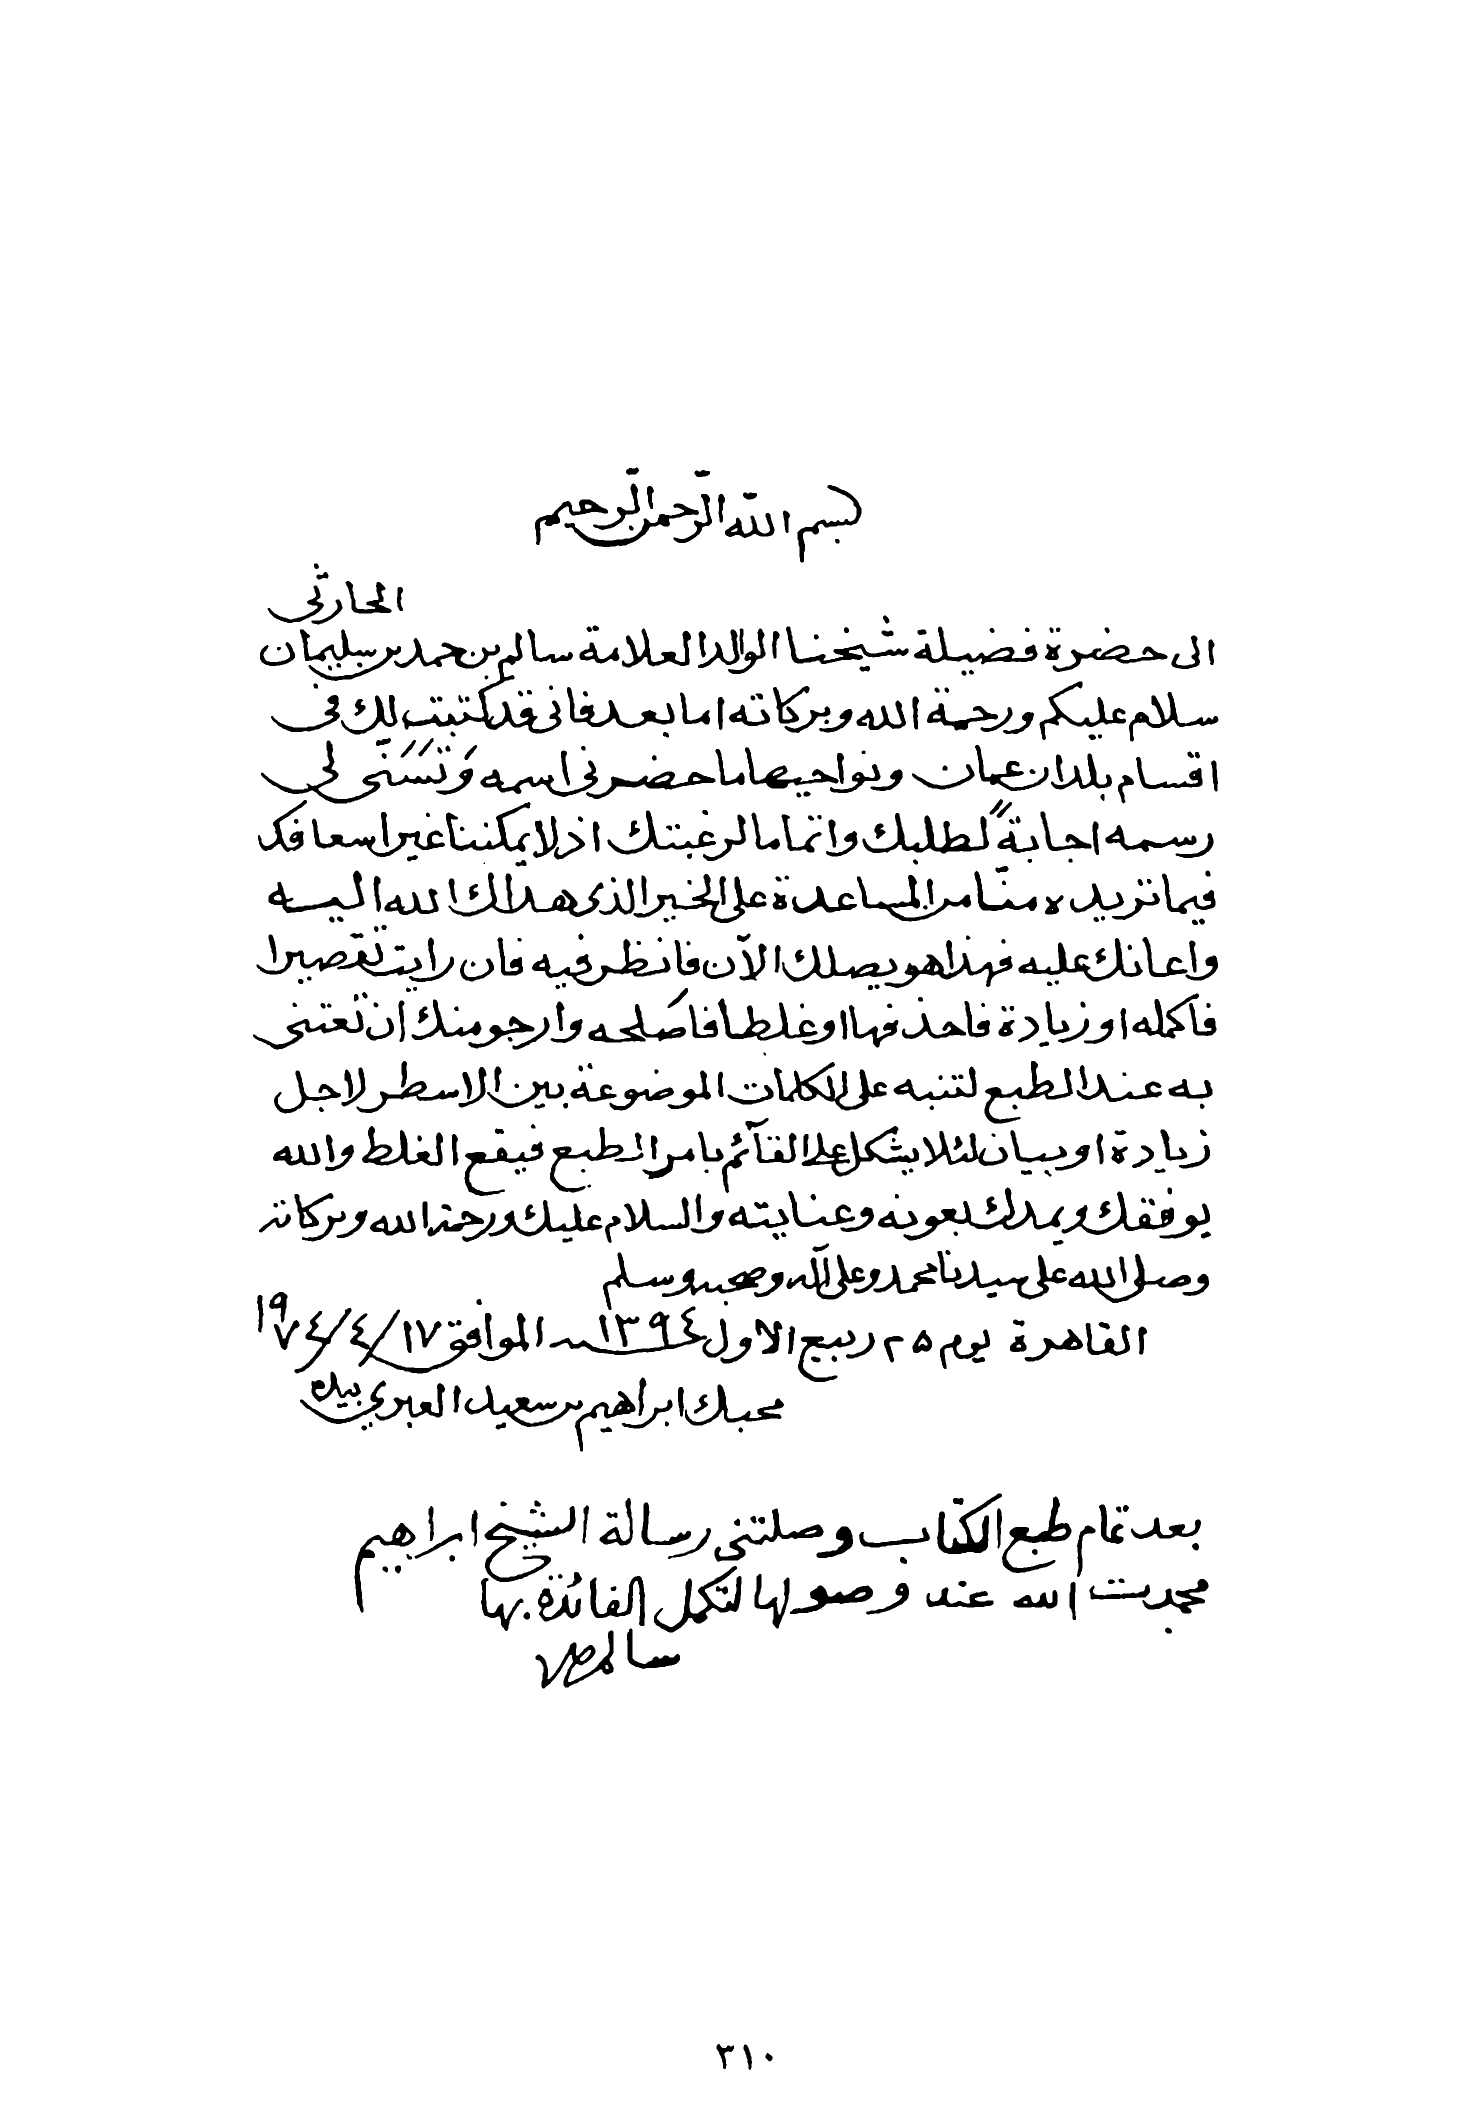 بسم الله الرّحمن الرّحيم
الحارثي
الى حضرة فضيلة شيخنا الوالد العلامة سالم بن حمد بن سليمان
سلام عليكم ورحمة الله وبركاته اما بعد فاني قد كتبت لك في
اقسام بلدان عمان ونواحيها ما حضرني اسمه وَتَسَنَّى لي
رسمه اجابةً لطلبك واتماما لرغبتك اذ لا يمكننا غير اسعافك
فيما تريده منّا من المساعدة على الخير الذى هداك الله اليه
واعانك عليه فهذا هو يصلك الآن فانظر فيه فان رايت تقصيرا
فاكمله او زيادة فاحذفها او غلطا فاصلحه وارجو منك ان تعتني
به عند الطبع لتنبه على الكلمات الموضوعة بين الاسطر لاجل
زيادة او بيان لئلا يشكل على القآئم بامر الطبع فيقع الغلط والله
يوفقك ويمدك بعونه وعنايته والسلام عليك ورحمة الله وبركاته
وصلى الله على سيدنا محمد وعلى آله وصحبه وسلم
القاهرة يوم ٢٥ ربيع الاول ١٣٩٤ الموافق ١٧/٤/١٩٧٤
محبك ابراهيم بن سعيد العبري بيده
بعد تمام طبع الكتاب وصلتني رسالة الشيخ ابراهيم
فحمدت الله عند وصولها لتكمل الفائدة بها
سالم
٣١٠